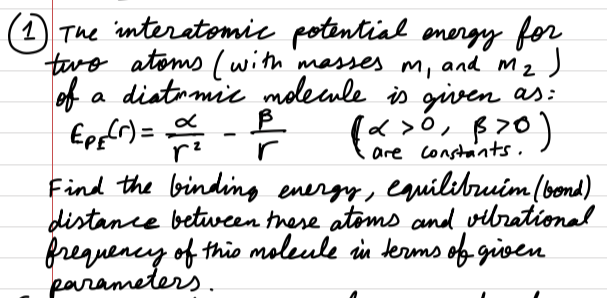 (1) The interatomic potential energy for
two atoms (with masses m₁ and m₂)
of a diatomic molecule is given as:
E_PE(r) = α/r² - β/r (α>0, β>0 are constants.)
Find the binding energy, equilibruim (bond)
distance between these atoms and vibrational
frequency of this molecule in terms of given
parameters.